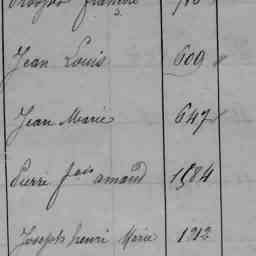 Jean Louis 609
Jean Marie 647
Pierre fois amand 1584
Joseph henri Marie 1212